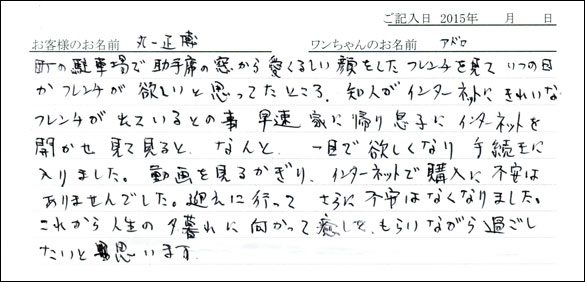 ご記入日 2015年　月　日
お客様のお名前 丸一正博 ワンちゃんのお名前 アドロ
町の駐車場で助手席の窓から愛くるしい顔をしたフレンチを見て いつの日
かフレンチが欲しいと思ってたところ、知人がインターネットにきれいな
フレンチが出ているとの事 早速 家に帰り息子にインターネットを
開かせ見て見ると なんと、一目で欲しくなり 手続きに
入りました。動画を見るかぎり、インターネットで購入に不安は
ありませんでした。迎えに行って さらに不安はなくなりました。
これから人生の夕暮れに向かって癒しを、もらいながら過ごし
たいと思います。